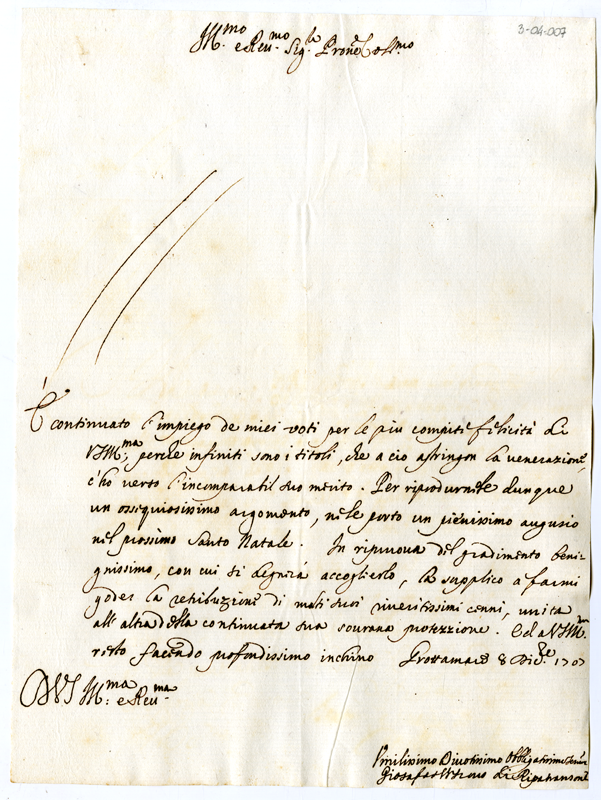 3-04-007
Ill.mo e Reu.mo Sig.re Pròne Col.mo
È continuato l'impiego de miei voti per le più compite felicità di
VS Ill.ma, perche infiniti sono i titoli, che a ciò astringon la venerazione,
c'hò verso l'incomparabil suo merito. Per riprodurnele dunque
un ossequiosissimo argomento, nè le porto un pienissimo augurio
nel prossimo Santo Natale. In ripruova del gradimento beni-
gnissimo, con cui si degnerà accoglierlo, la supplico a farmi
goder la retribuzione di molti suoi riveritissimi cenni, unita
all'altra della continuata sua sourana protezzione. Ed a VS Ill.ma
resto facendo profondissimo inchino Grottamare 8 Dic.re 1707
DVS Ill.ma e Reu.ma
Vmilissimo Diuotissimo Obbligatissimo
Giosafat Vescovo di Ripatransone